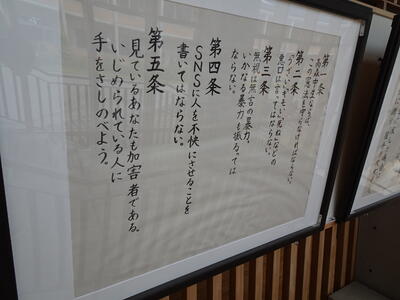 第一条
この憲法を守らなければならない。
第二条
悪口は言ってはならない。
第三条
無視は無言の暴力。
いかなる暴力も振るっては
ならない。
第四条
SNSに人を不快にさせることを
書いてはならない。
第五条
見ているあなたも加害者である。
いじめられている人に
手をさしのべよう。